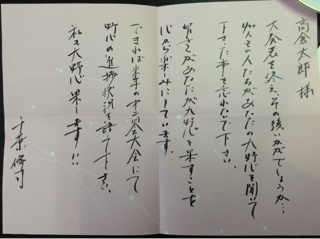 高倉太郎 様
大発表を終え、その後いかがでしょうか…
如くその人たちがあなたの大野心を聞いて
下さった事を忘れないで下さい。
皆んながあなたが大野心を果すことを
心から楽しみにしています。
できれば来年の十二会大会にて
野心の進捗状況を語って下さい。
私も大野心果します!!
千葉修司